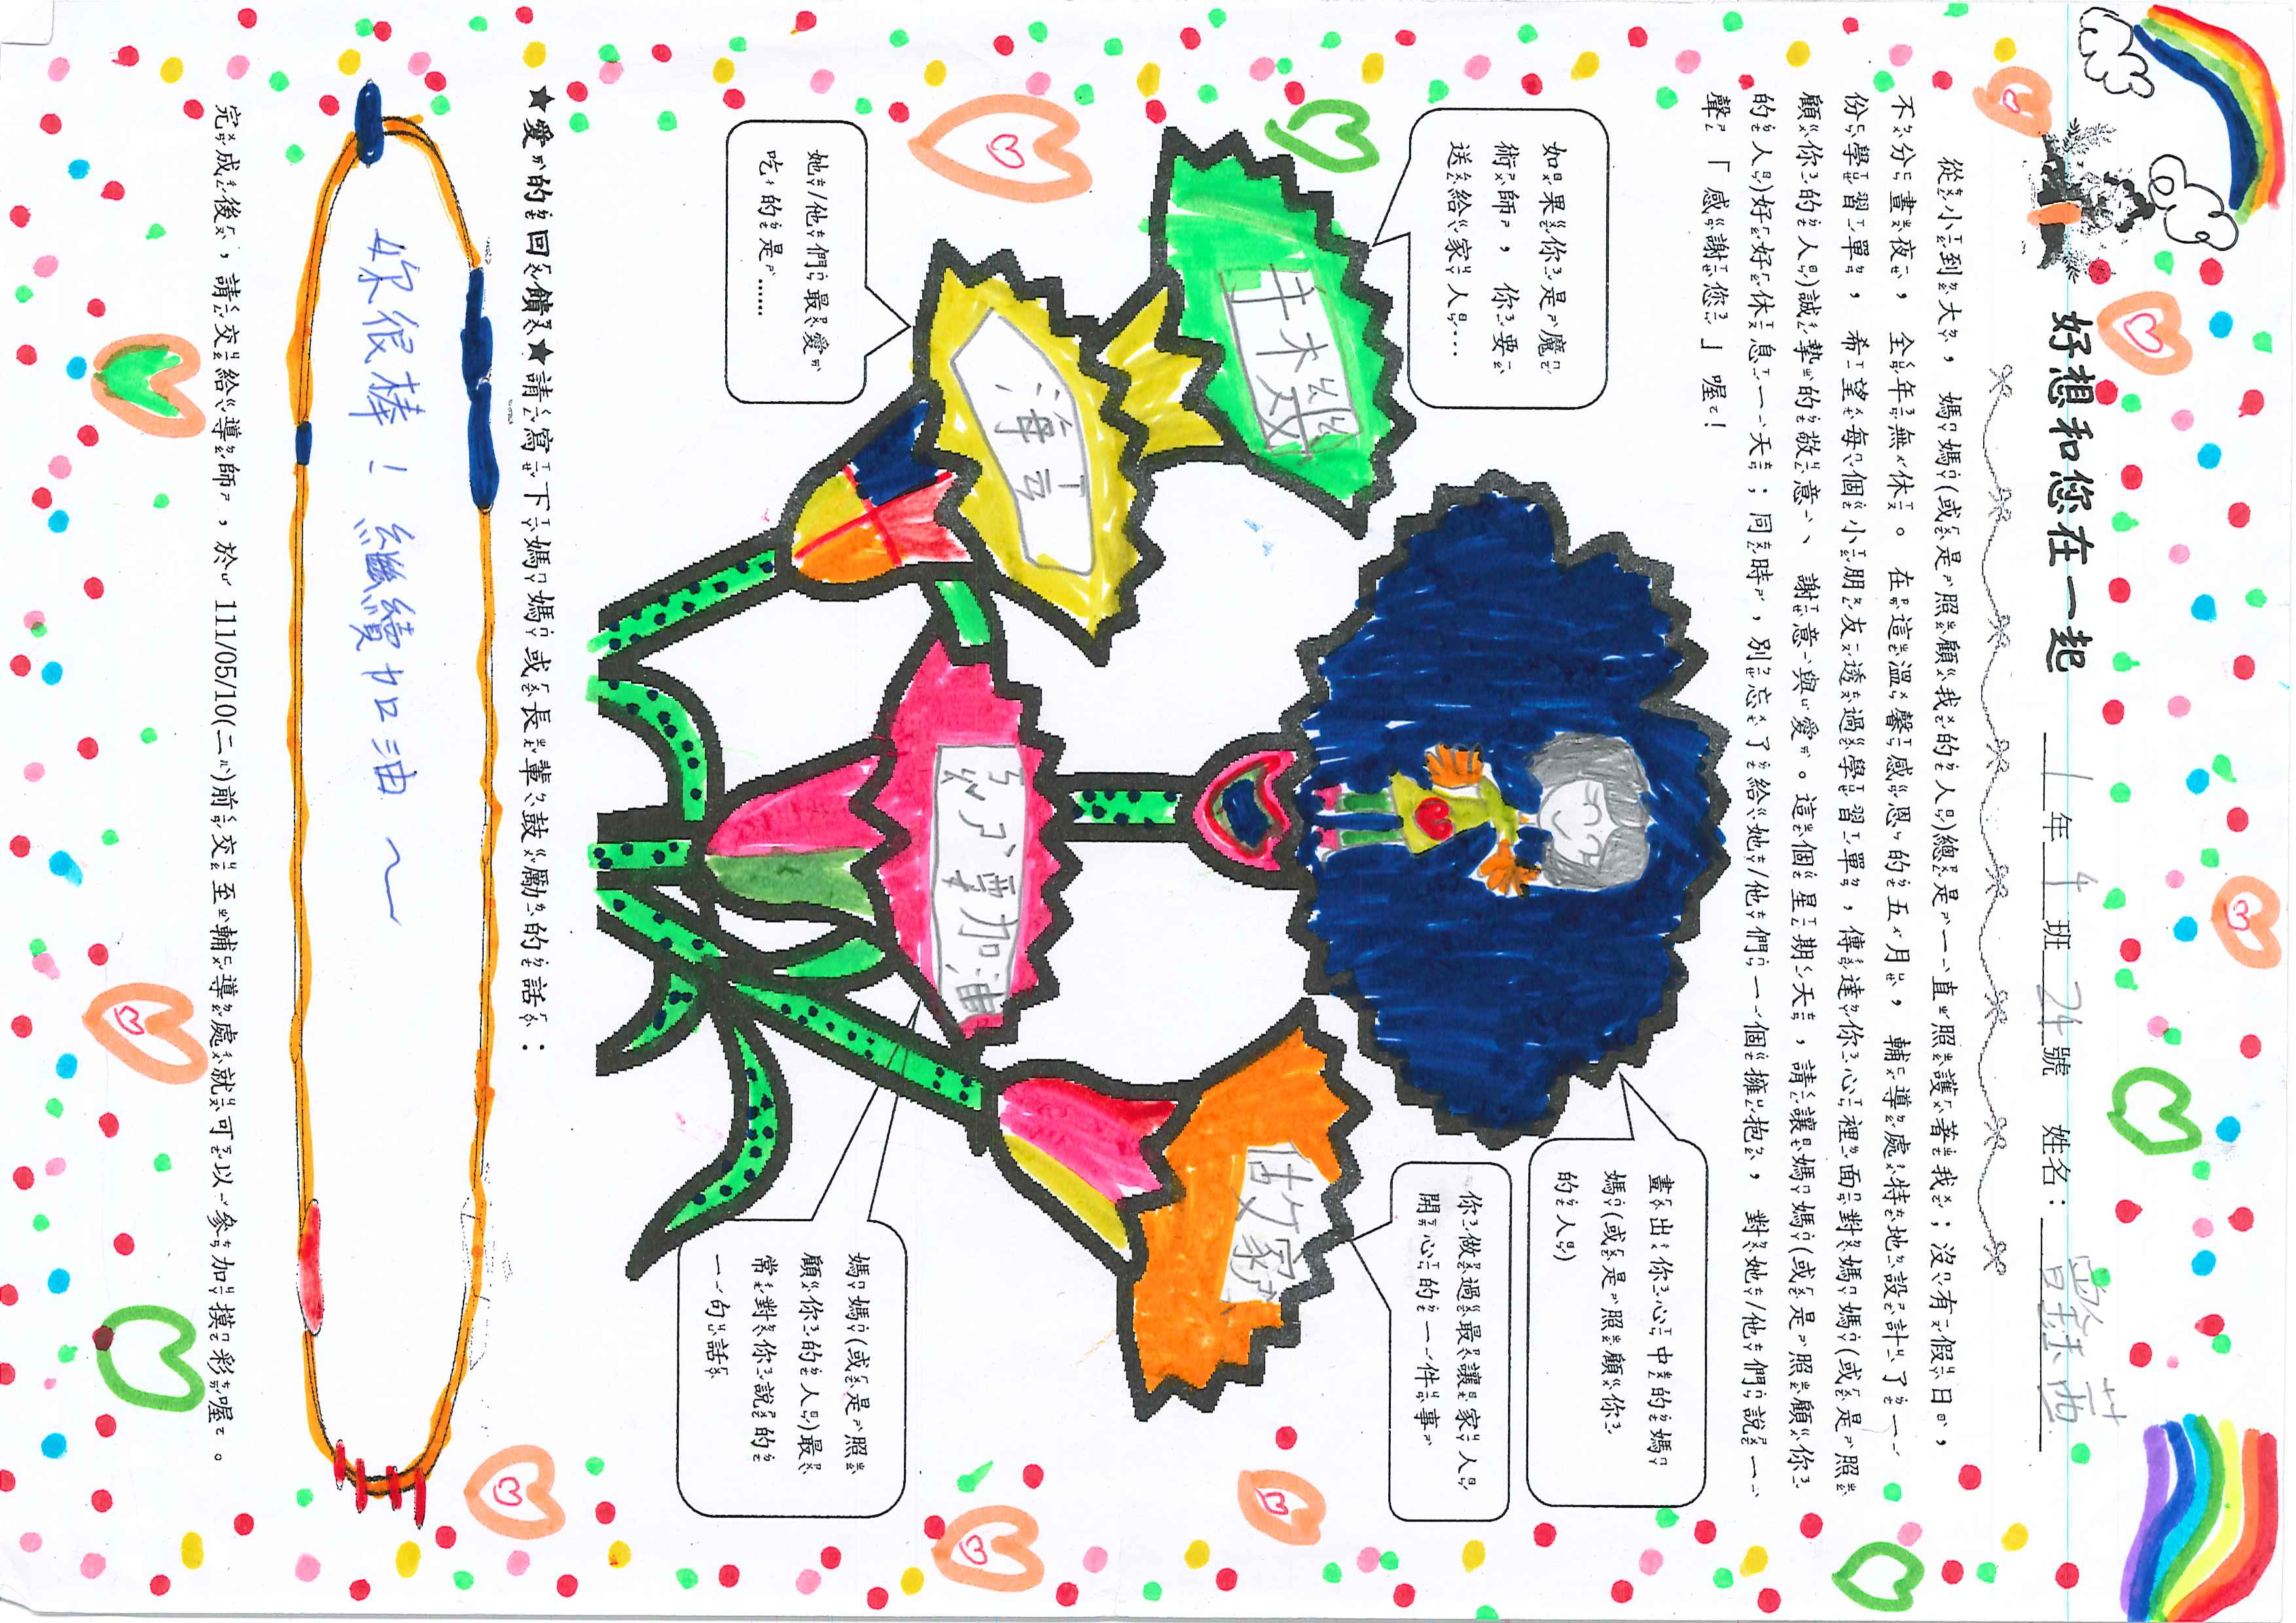 好想和您在一起 1年4班24號 姓名：
從小到大，媽媽(或是照顧我的人)總是一直照護著我；沒有假日，
不分晝夜，全年無休。在這溫馨感恩的五月，輔導處特地設計了一
份學習單，希望每個小朋友透過學習單，傳達你心裡面對媽媽(或是照
顧你的人)誠摯的敬意、謝意與愛。這個星期天，請讓媽媽(或是照顧你
的人)好好休息一天；同時，別忘了給她/他們一個擁抱，對她/他們說一
聲「感謝您」喔！
畫出你心中的媽
媽(或是照顧你
的人)
如果你是魔
術師，你要
送給家人…
你做過最讓家人
開心的一件事
她/他們最愛
吃的是……
海
媽媽(或是照
顧你的人)最
常對你說的
一句話
加油
★愛的回饋★請寫下媽媽或長輩鼓勵的話：
妳很棒！繼續加油～
完成後，請交給導師，於111/05/10(二)前交至輔導處就可以參加摸彩喔。